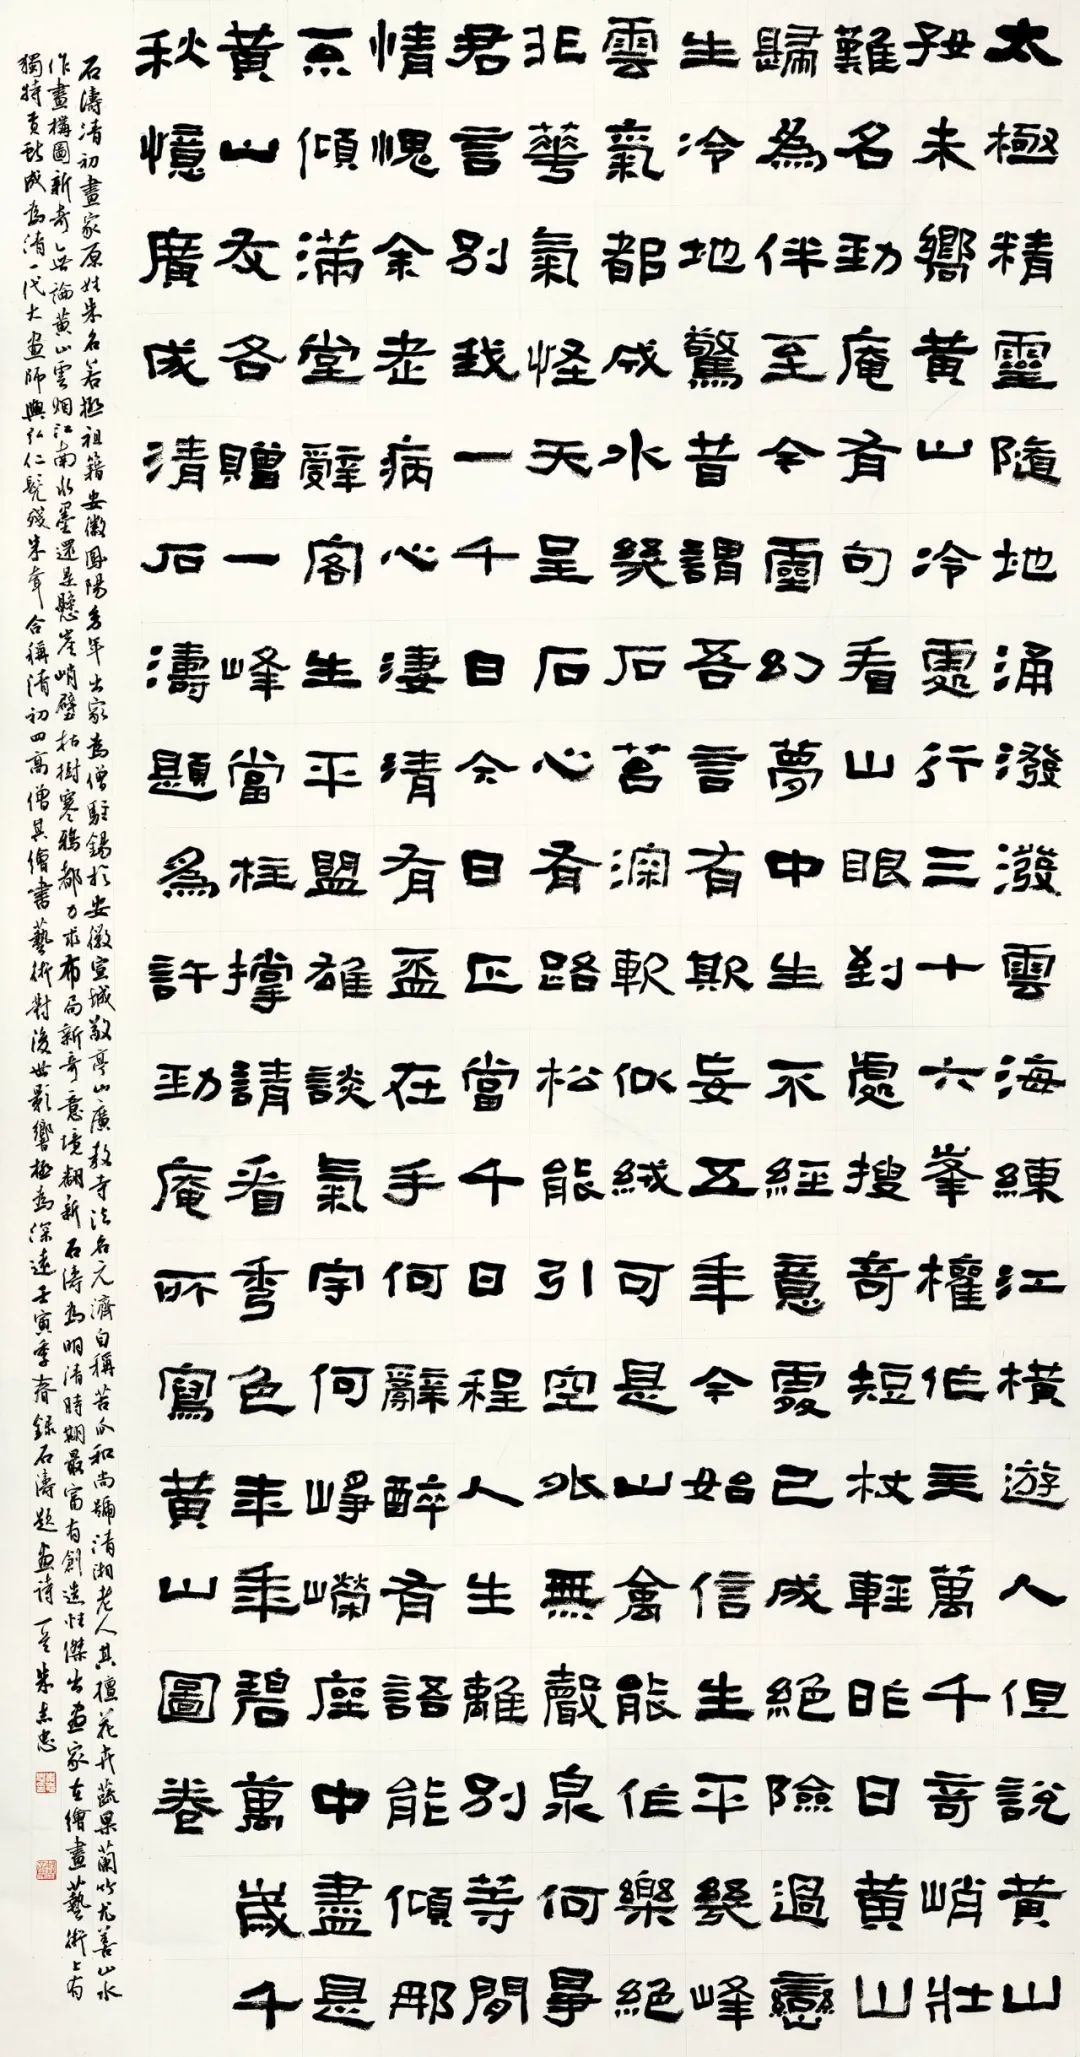 太極精靈隨地涌潑潑雲海練江橫遊人但說黃山
好未嚮黃山冷處行三十六峯權作主萬千奇峭壯
難名勁庵有句看山眼到處搜奇短杖輕昨日黃山
歸為伴至今靈幻夢中生不經意處已成絕險過巒
生冷地驚昔謂吾言有欺妄五年今始信生平幾峰
雲氣都成水幾石苔深軟似絨可是山禽能作樂絕
非華氣怪天呈石心有路松能引空外無聲泉何爭
君言別我一千日今日正當千日程人生離別等閒
情愧余老病心淒清有盃在手何辭醉有語能傾那
不傾滿堂辭客生平盟雄談氣宇何崢嶸座中盡是
黃山友各贈一峰當柱撐請看秀色年年碧萬歲千
秋憶廣成清石濤題為許勁庵所寫黃山圖卷
石濤清初畫家原姓朱名若極祖籍安徽鳳陽幼年出家為僧駐錫於安徽宣城敬亭山廣教寺法名元濟自稱苦瓜和尚號清湘老人其擅花卉蔬果蘭竹尤善山水
作畫構圖新奇無論黃山雲烟江南水墨還是懸崖峭壁枯樹寒鴉都力求布局新奇意境翻新石濤為明清時期最富有創造性傑出畫家在繪畫藝術上有
獨特貢獻成為清一代大畫師與弘仁髡殘朱耷合稱清初四高僧其繪書藝術對後世影響極為深遠壬寅季春錄石濤題畫詩一首朱志忠